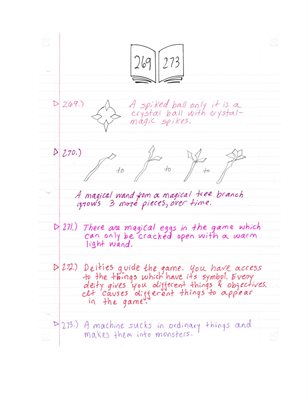 269 273
269.) A spiked ball only it is a
crystal ball with crystal-
magic spikes.
270.)
to to to
A magical wand from a magical tree branch
grows 3 more pieces, over time.
271.) There are magical eggs in the game which
can only be cracked open with a warm
light wand.
272.) Deities guide the game. You have access
to the things which have its symbol. Every
deity gives you different things & objectives.
It causes different things to appear
in the game.
273.) A machine sucks in ordinary things and
makes them into monsters.